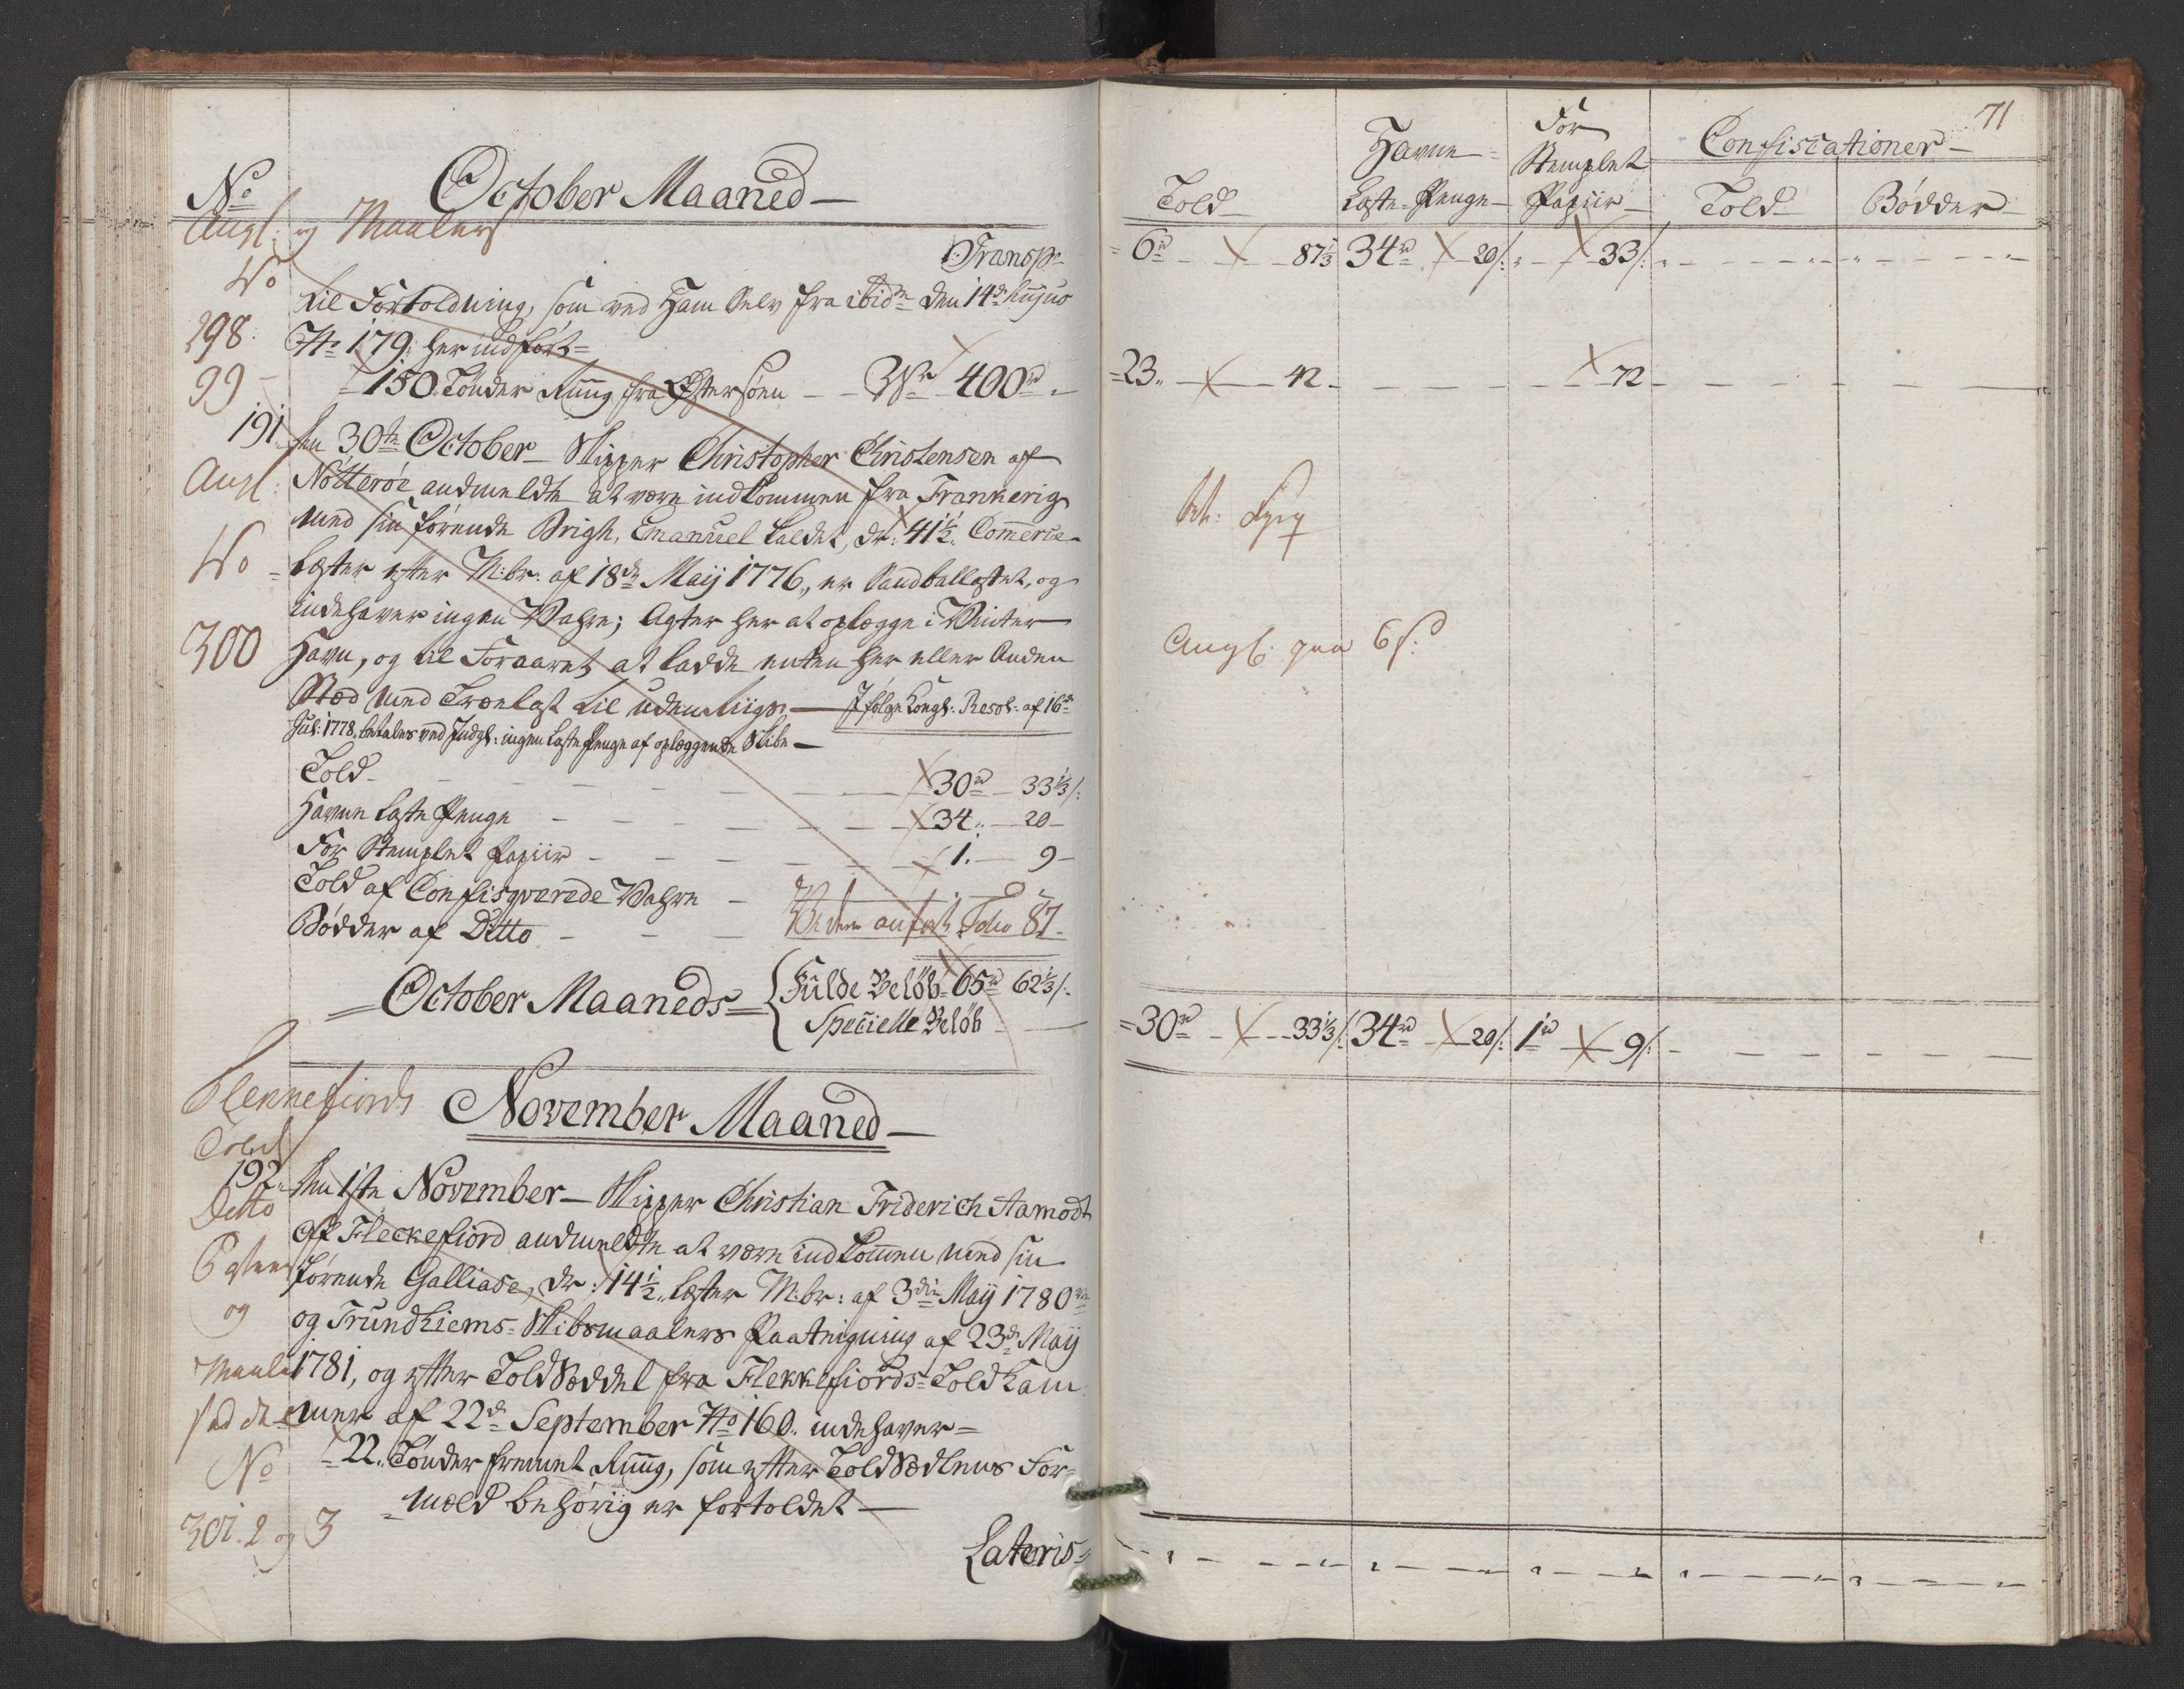 No
October Maaned —
Angl: og Maalers
Transp:
No
til Fortoldning, som ved Ham Selv fra ibidm den 14de hujus
298.
No 179. her indført=
99
150. Tønder Rúúg fra Østersøen — Vr 400rd
191.
Den 30te October — Skipper Christopher Christensen af
Angl:
Nötteröe andmeldte at være indkommen fra Frankerig
med sin førende Brigh, Emanuel kaldet, dr: 41½. Commerce
No
Læster efter M:br: af 18de Maij 1776, er Sandballastet, og
indehaver ingen Vahre; Agter her at oplægge i Vinter
300
Havn, og til Foraaret at ladde enten her eller Anden
Stæd med Trælast til udenRiigs — Ifølge Kongl: Resol: af 16de
Jul: 1778. betales ved Indgl: ingen Laste Penge af oplæggende Skibe —
Told — 30rd — 33⅓ s:
Havne Laste Penge — 34. — 20 —
For Stemplet Papiir — 1. — 9 —
Told af Confisqverede Vahre —
Bødder af Ditto — anført Folio 87.
October Maaneds
Fúlde Beløb 65rd 62⅓ s:
Specielle Beløb —
Flekkefiords
November Maaned —
Told
192.
Den 1ste November — Skipper Christian Friderich Aamodt
Ditto
af Fleckefiord andmeldte at være indkommen med sin
førende Galliase, dr: 14½. Læster M:br: af 3die Maij 1780
og
og Trúndhiems Skibsmaalers Paategning af 23de Maij
Maale
1781, og efter Told Sæddel fra Flekkefiords Told Kam
seddel
mer af 22de September No 160. indehaver=
No
22. Tønder fremmet Rúúg, som efter Told Sedlens For=
mæld behørig er fortoldet —
301. 2 og 3
Lateris
71
Told
Havne
Laste-Penge
For
Stemplet
Papiir
Confiscationer
Told
Bødder
6rd — 87⅓ 34rd 20 s: — 33 s:
23. — 42 — 72
Angl. paa 6 s:
30rd — 33⅓ s: 34rd 20 s: 1rd 9 s: